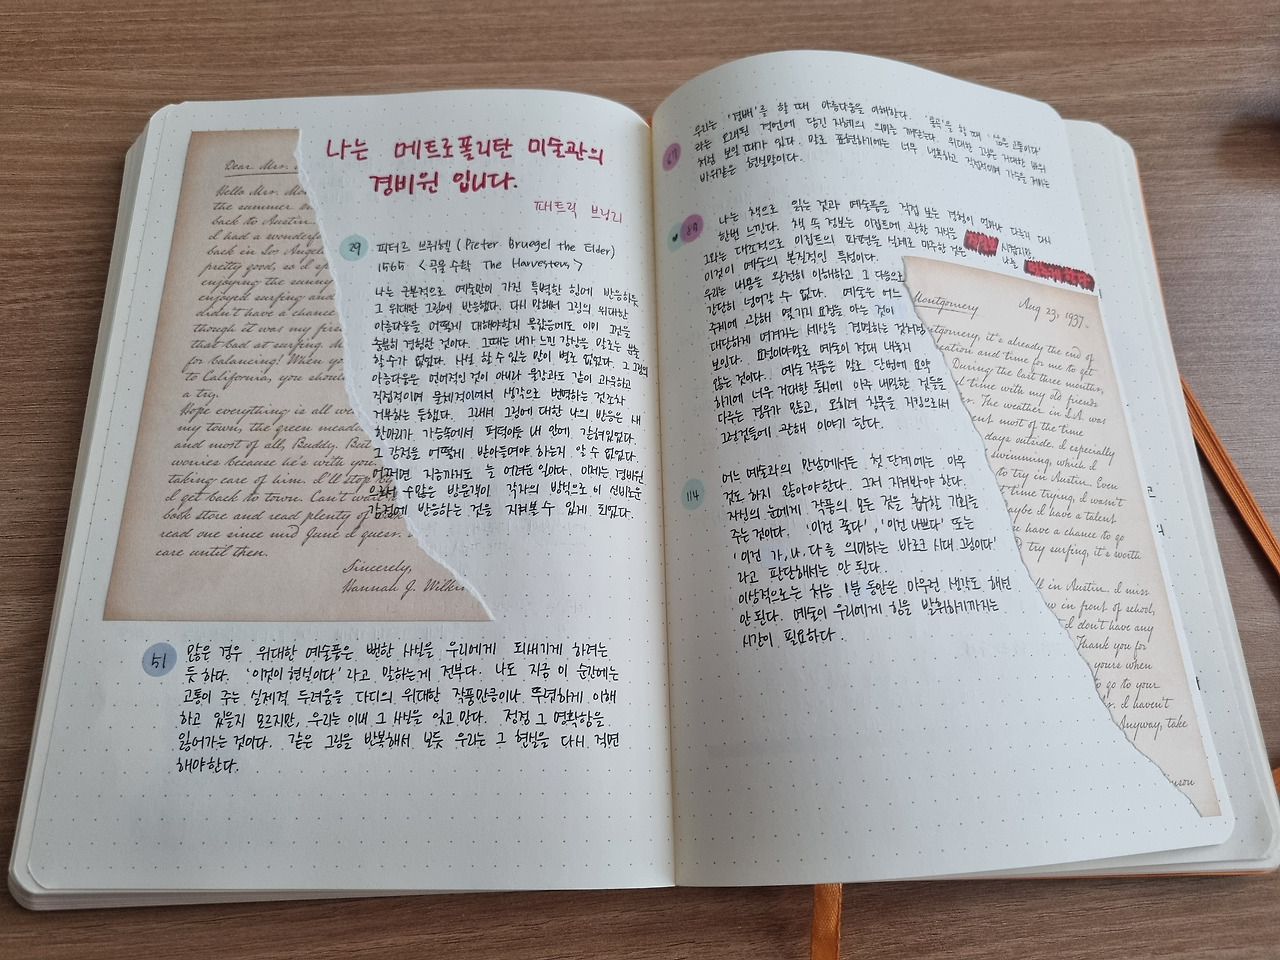 나는 메트로폴리탄 미술관의
경비원 입니다.
패트릭 브링리
29
피터르 브뤼헐 (Pieter Bruegel the Elder)
1565 <곡물 수확 The Harvesters>
나는 근본적으로 예술만이 가진 특별한 힘에 반응하듯
그 위대한 그림에 반응했다. 다시 말해서 그림의 위대한
아름다움을 어떻게 대해야할지 몰랐음에도 이미 그것을
충분히 경험한 것이다. 그때는 내가 느낀 감상을 말로는 분출
할 수가 없었다. 사실 할 수 있는 말이 별로 없었다. 그 그림의
아름다움은 언어적인 것이 아니라 물감과도 같이 과묵하고
직접적이며 물체적이어서 생각으로 번역하는 것조차
거부하는 듯했다. 그래서 그림에 대한 나의 반응은 새
한마리가 가슴속에서 퍼덕이듯 내 안에 갇혀있었다.
그 감정을 어떻게 받아들여야 하는지 알 수 없었다.
어쩌면 지금까지도 늘 어려운 일이다. 이제는 경비원
으로서 수많은 방문객이 각자의 방식으로 이 신비로운
감정에 반응하는 것을 지켜볼 수 있게 되었다.
Dear Mrs.
Hello Mrs.
the summer
back to Austin.
I had a wonderful
back in Los Angeles
pretty good, so I
enjoying the sunny
enjoyed surfing and
didn't have a chance
though it was my first
that bad at surfing.
for balancing! When you
to California, you should
a try.
Hope everything is all
my town, the green
and most of all, Buddy. But
worries because he's with you.
taking care of him. I'll stop
I get back to town. Can't wait
book store and read plenty of
read one since mid June I guess.
care until then.
Sincerely,
Hannah J.
51
많은 경우 위대한 예술품은 뻔한 사실을 우리에게 되새기게 하려는
듯 하다. '이것이 현실이다' 라고 말하는게 전부다. 나도 지금 이 순간에는
고통이 주는 실제적 두려움을 다디의 위대한 작품만큼이나 뚜렷하게 이해
하고 있을지 모르지만, 우리는 이내 그 사실을 잊고 만다. 점점 그 명확함을
잃어가는 것이다. 같은 그림을 반복해서 보듯 우리는 그 현실을 다시 직면
해야한다.
우리는 '경배'를 할 때 아름다움을 이해한다. '통곡'을 할 때 '삶은 고통이다'
라는 오래된 격언에 담긴 지혜의 의미를 깨닫는다. 위대한 그림은 거대한 바위
처럼 보일 때가 있다. 말로 표현하기에는 너무 냉혹하고 직접적이며 가슴을 저미는
바위같은 현실말이다.
나는 책으로 읽는 것과 예술품을 직접 보는 경험이 얼마나 다른지 다시
한번 느낀다. 책 속 정보는 이집트에 관한 지식을 시켰지만,
그와는 대조적으로 이집트의 파편을 실제로 마주한 것은 나를
이것이 예술의 본질적인 특성이다.
우리는 내용을 완전히 이해하고 그 다음으로
간단히 넘어갈 수 없다. 예술은 어느
주제에 관해 몇가지 요점을 아는 것이
대단하게 여겨지는 세상을 경멸하는 것처럼
보인다. 요점이야말로 예술이 절대 내놓지
않는 것이다. 예술 작품은 말로 단번에 요약
하기에 너무 거대한 동시에 아주 내밀한 것들을
다루는 경우가 많고, 오히려 침묵을 지킴으로써
그런것들에 관해 이야기 한다.
114
어느 예술과의 만남에서든 첫 단계에는 아무
것도 하지 않아야한다. 그저 지켜봐야 한다.
자신의 눈에게 작품의 모든 것을 흡수할 기회를
주는 것이다. '이건 좋다', '이건 나쁘다' 또는
'이건 가, 나, 다를 의미하는 바로크 시대 그림이다'
라고 판단해서는 안 된다.
이상적으로는 처음 1분 동안은 아무런 생각도 해선
안 된다. 예술이 우리에게 힘을 발휘하기까지는
시간이 필요하다.
Montgomery
Aug 23, 1937.
it's already the end of
and time for me to get
During the last three months,
time with my old friends
The weather in L.A. was
most of the time
days outside. I especially
swimming, which I
to try in Austin. Even
time trying, I wasn't
maybe I have a talent
have a chance to go
try surfing, it's worth
in Austin. I miss
in front of school,
I don't have any
Thank you for
yours when
to go to your
I haven't
Anyway, take